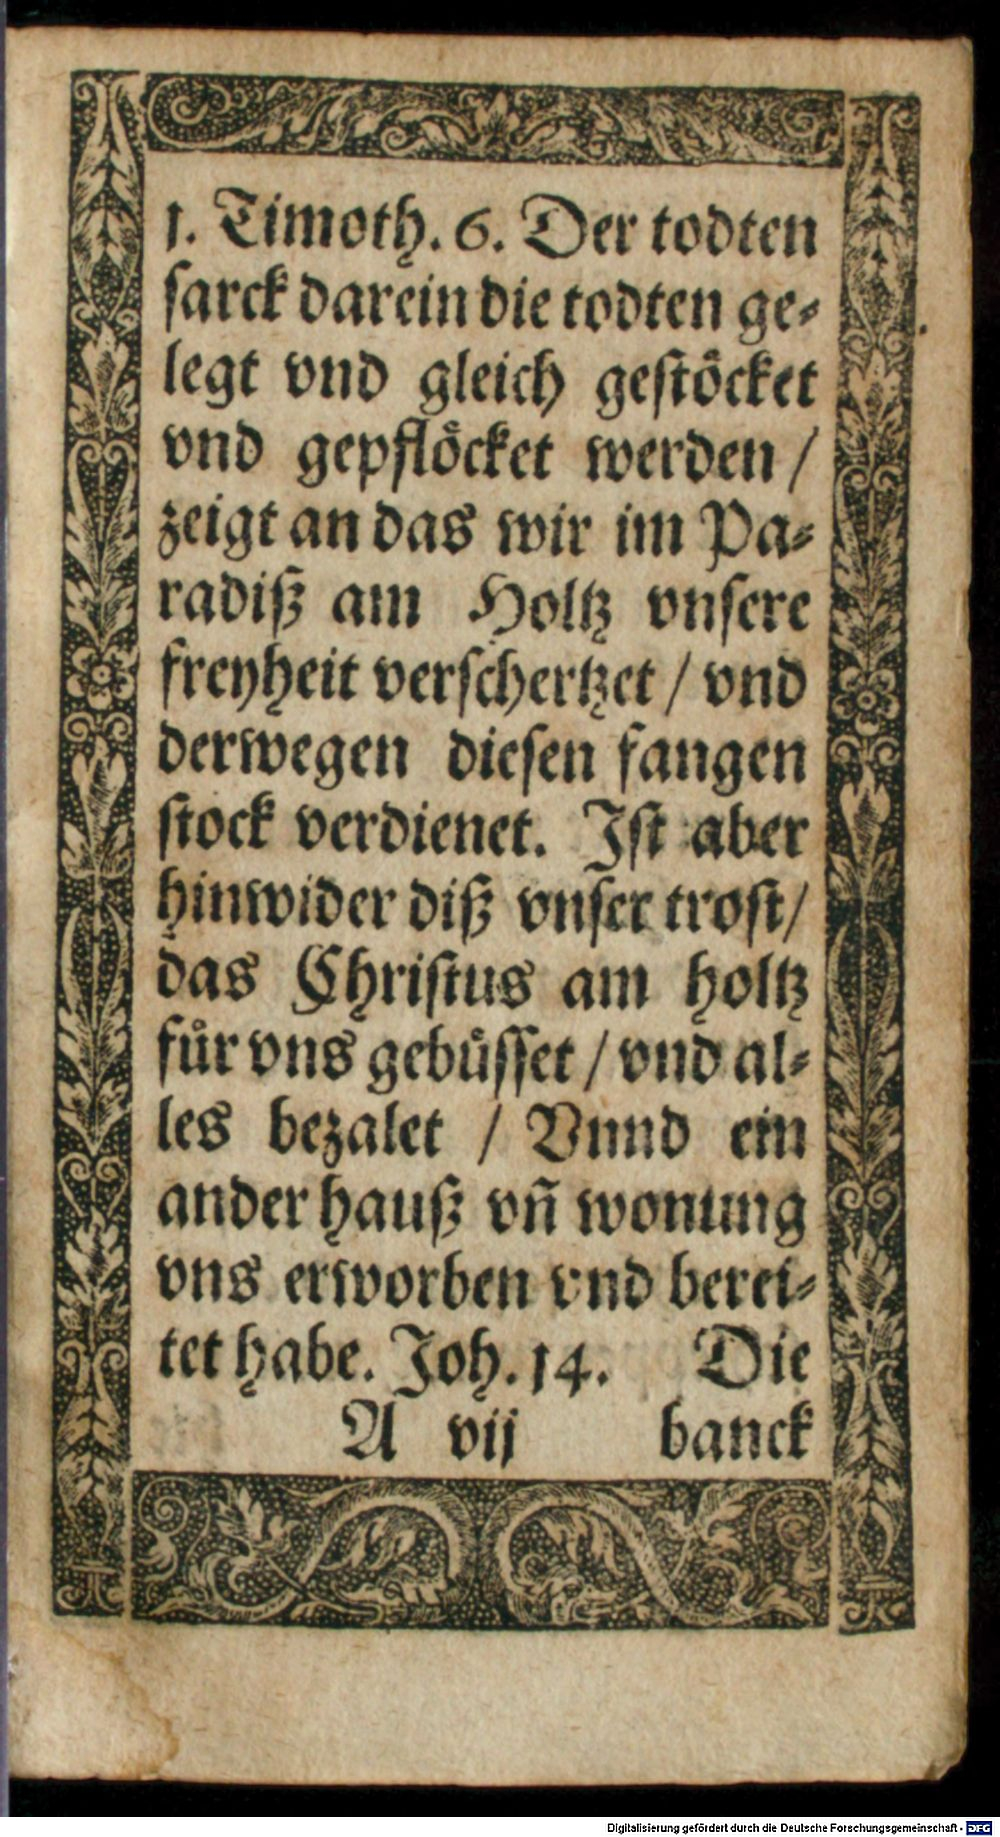 1. Timoth. 6. Der todten
sarck darein die todten ge-
legt vnd gleich gestöcket
vnd gepflöcket werden /
zeigt an das wir im Pa-
radiß am Holtz vnsere
freyheit verschertzet / vnd
derwegen diesen fangen
stock verdienet. Ist aber
hinwider diß vnser trost /
das Christus am holtz
fůr vns gebůsset / vnd al-
les bezalet / Vnnd ein
ander hauß vñ wonung
vns erworben vnd berei-
tet habe. Joh. 14. Die
A vij banck
Digitalisierung gefördert durch die Deutsche Forschungsgemeinschaft - DFG